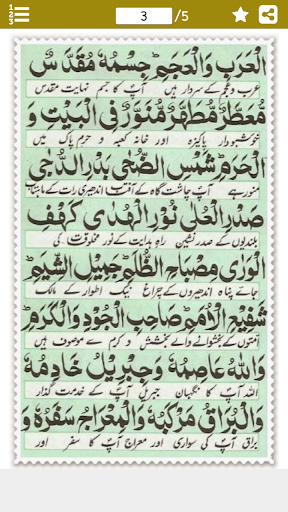 3 /5
الْعَرَبِ وَالْعَجَمِ جِسْمُهٗ مُقَدَّسٌ
عرب و عجم کے سردار ہیں آپؐ کا جسم نہایت مقدس
مُعَطَّرٌ مُطَهَّرٌ مُنَوَّرٌ فِی الْبَیْتِ وَ
خوشبودار پاکیزہ اور خانہ کعبہ و حرم پاک میں
الْحَرَمِ شَمْسِ الضُّحٰی بَدْرِ الدُّجٰی
منور ہے آپؐ چاشت گاہ کے آفتاب اندھیری رات کے ماہتاب
صَدْرِ الْعُلٰی نُوْرِ الْهُدٰی کَهْفِ
بلندیوں کے صدر نشین راہ ہدایت کے نور مخلوقات کی
الْوَرٰی مِصْبَاحِ الظُّلَمِ جَمِیْلِ الشِّیَمِ
جائے پناہ اندھیروں کے چراغ نیک اطوار کے مالک
شَفِیْعِ الْاُمَمِ صَاحِبِ الْجُوْدِ وَالْکَرَمِ
امتوں کے بخشوانے والے بخشش و کرم سے موصوف ہیں
وَاللّٰهُ عَاصِمُهٗ وَجِبْرِیْلُ خَادِمُهٗ
اللہ آپؐ کا نگہبان جبریل آپؐ کے خدمت گذار
وَالْبُرَاقُ مَرْکَبُهٗ وَالْمِعْرَاجُ سَفَرُهٗ وَ
براق آپؐ کی سواری اور معراج آپؐ کا سفر اور